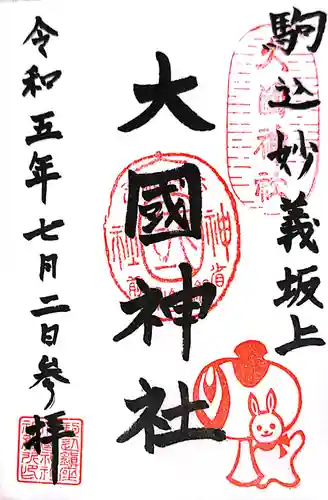 駒込妙義坂上
大國神社
令和五年七月二日参拝